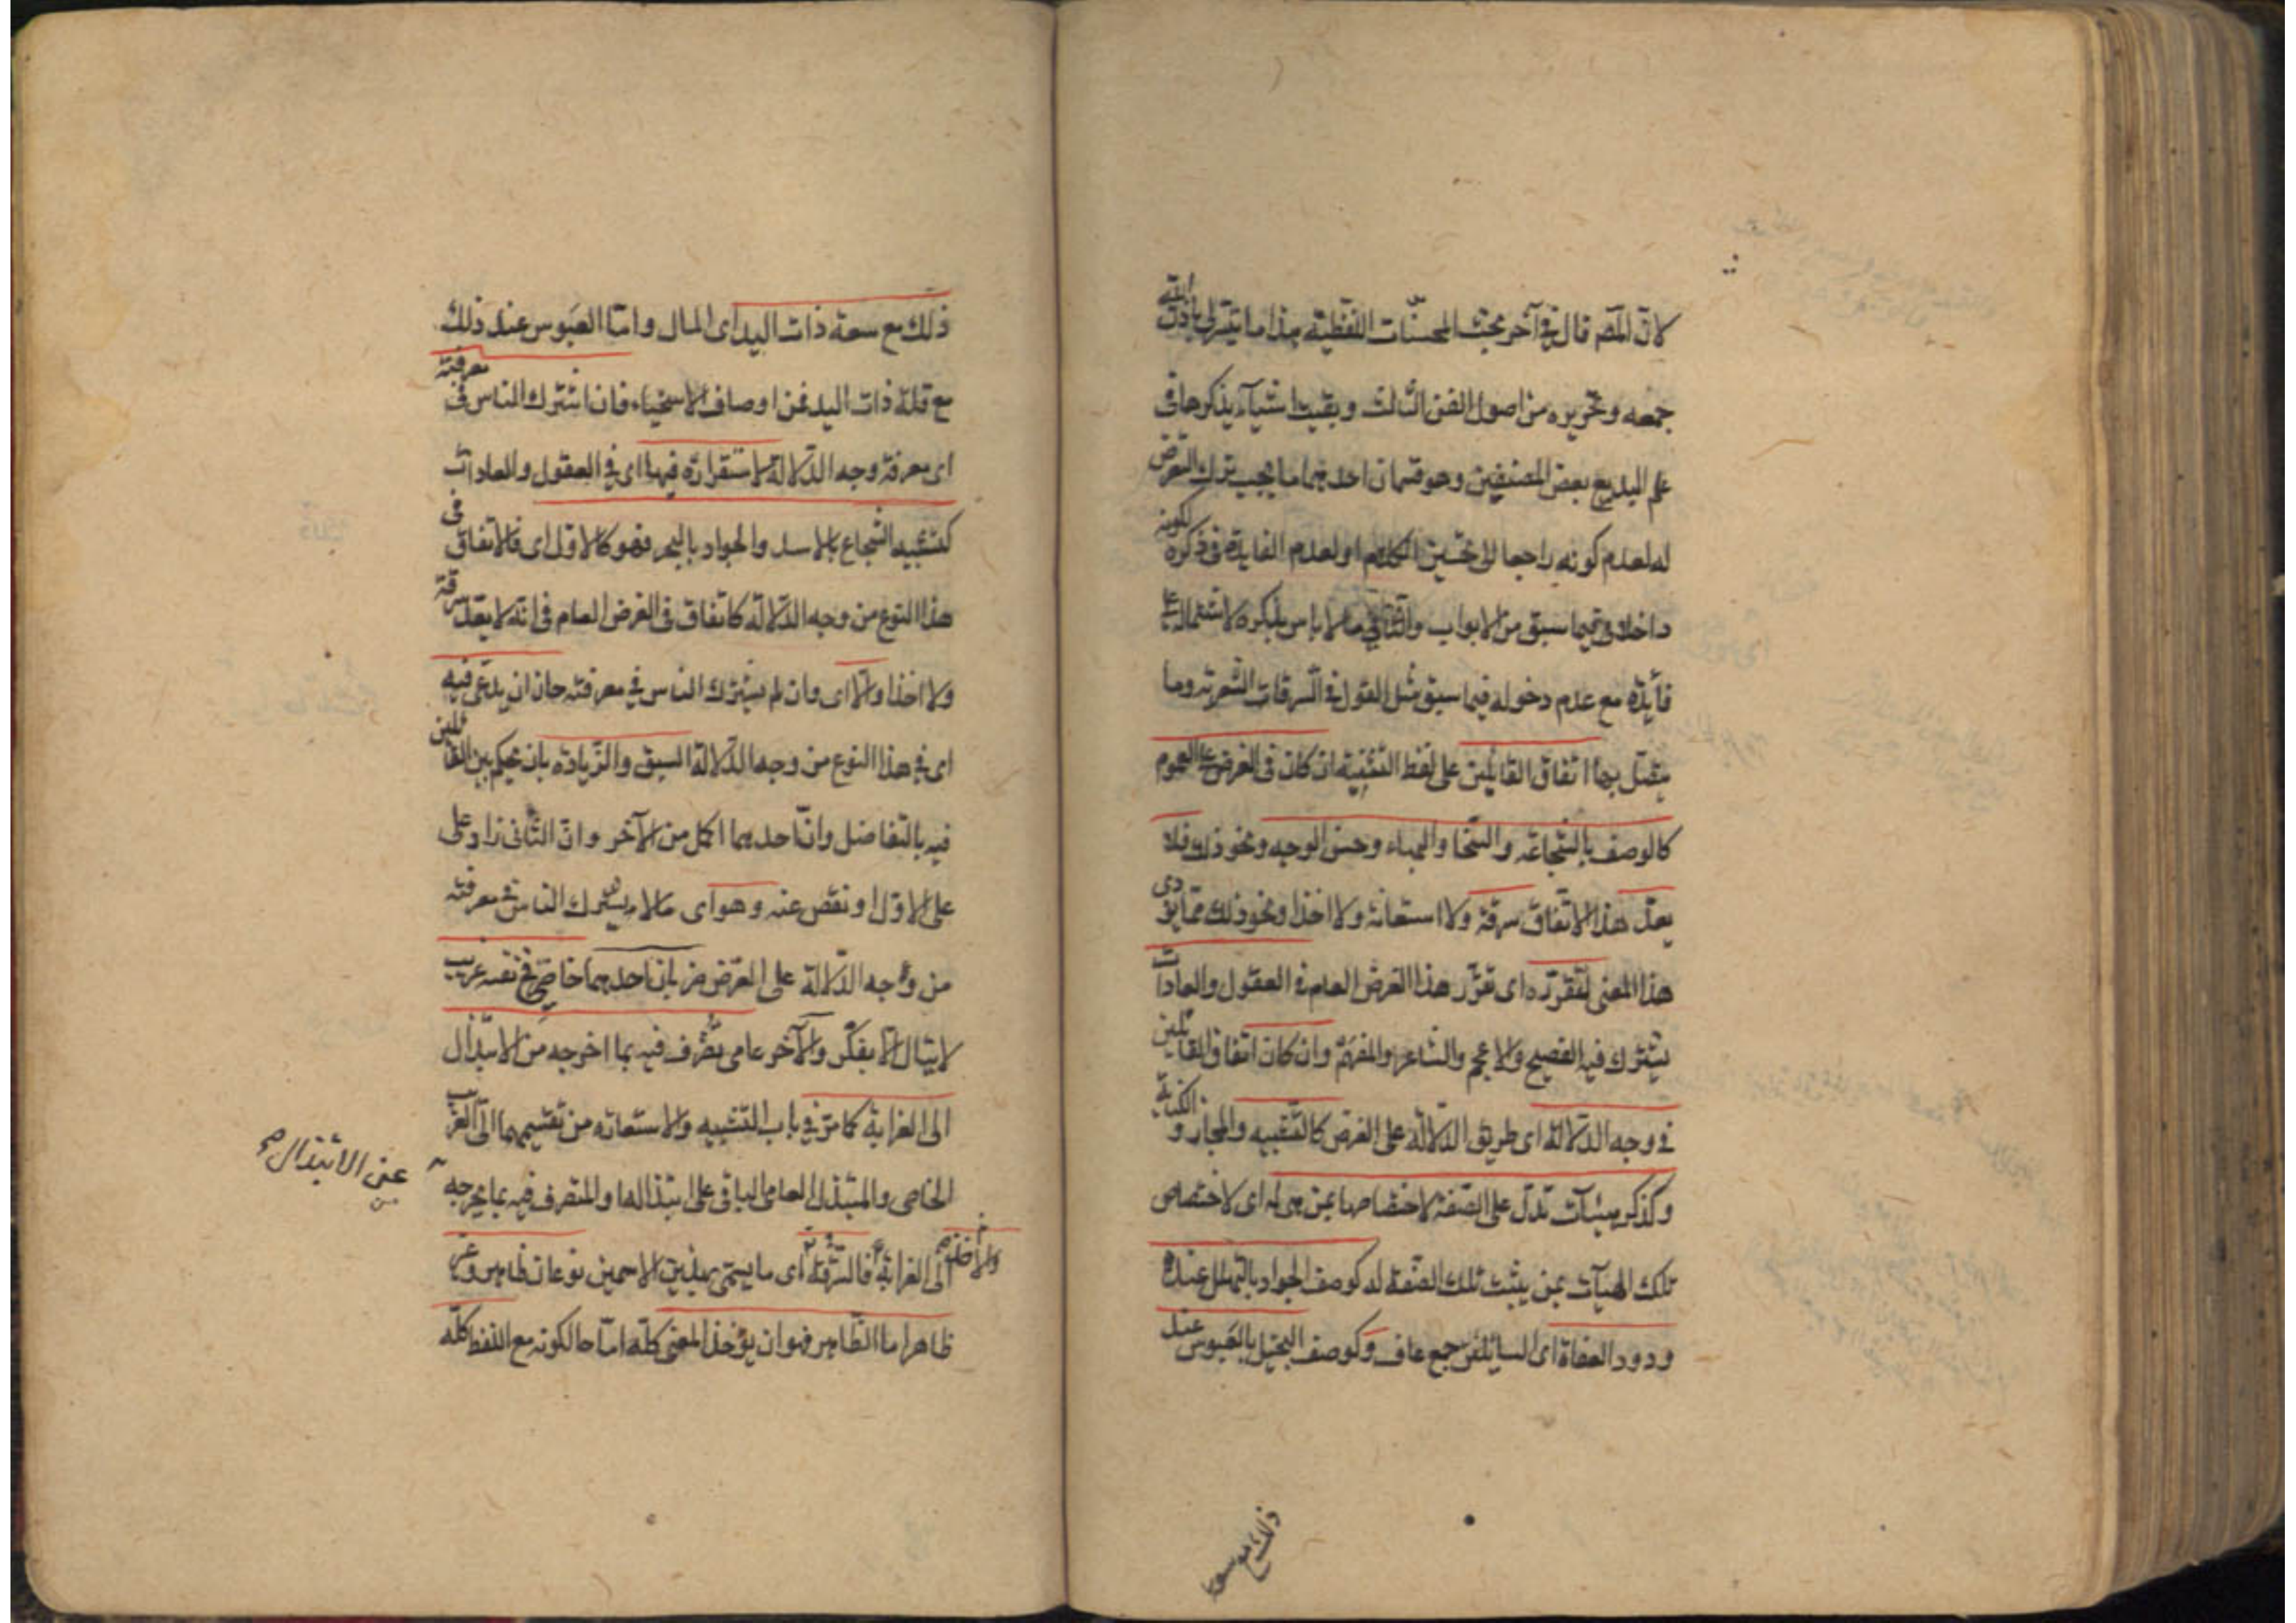 لان المصـ قال فى آخر بحث المحسنات اللفظية هذا ما تيسر لى باذن الله
جمعه وتحريره من اصول الفن الثالث وبقيت اشياء يذكرها فى
علم البديع بعض المصنفين وهو قسمان احدهما ما يجب ترك التعرض
له لعدم كونه راجعا الى تحسين الكلام او لعدم الفايدة فى ذكره لكونه
داخلا فيما سبق من الابواب والثانى ما لا باس بذكره لاشتماله على
فائدة مع عدم دخوله فيما سبق مثل القول فى السرقات الشعرية وما
يتصل بها اتفاق القائلين على لفظ التثنية ان كان فى الغرض على العموم
كالوصف بالشجاعة والسخا والبهاء وحسن الوجه ونحو ذلك فلا
يعد هذا الاتفاق سرقة ولا استعانة ولا اخذا ونحو ذلك مما يؤدى
هذا المعنى لتقرره اى تقرر هذا الغرض العام فى العقول والعادات
يشترك فيه الفصيح والاعجم والشاعر والمفحم وان كان اتفاق القائلين
فى وجه الدلالة اى طريق الدلالة على الغرض كالتشبيه والمجاز والكناية
وكذكر هيئات تدل على الصفة لاختصاصها بمن هى له اى لاختصاص
تلك الهيآت بمن يثبت تلك الصفة له كوصف الجواد بالتهلل عند
ورود العفاة اى السايلين جمع عاف وكوصف البخيل بالعبوس عند
ذلك مع سعة
ذلك مع سعة ذات اليد اى المال واما العبوس عند ذلك
مع قلة ذات اليد فمن اوصاف الاسخياء فان اشترك الناس فى معرفته
اى معرفة وجه الدلالة لاستقراره فيها اى فى العقول والعادات
كتشبيه الشجاع بالاسد والجواد بالبحر فهو كالاول اى فالاتفاق فى
هذا النوع من وجه الدلالة كاتفاق فى الغرض العام فى انه لا يعد سرقة
ولا اخذا والا اى وان لم يشترك الناس فى معرفته جاز ان يدعى فيه
اى فى هذا النوع من وجه الدلالة السبق والزيادة بان يحكم بين القائلين
فيه بالتفاضل وان احدهما اكمل من الآخر وان الثانى زاد على
على الاول او نقص عنه وهو اى ما لا يشترك الناس فى معرفته
من وجه الدلالة على الغرض ضربان احدهما خاصى فى نفسه غريب
لا ينال الا بفكر والآخر عامى تصرف فيه بما اخرجه من الابتذال
الى الغرابة كما مر فى باب التشبيه والاستعارة من تقسيمهما الى الغريب
الخاصى والمبتذل العامى الباقى على ابتذالها والمتصرف فيه بما يخرجه
عن الابتذال صح
الى الغرابة فالسرقة والاخذ اى ما يسمى بهذين الاسمين نوعان ظاهر وغير
ظاهر اما الظاهر فهو ان يؤخذ المعنى كله اما حال كونه مع اللفظ كله